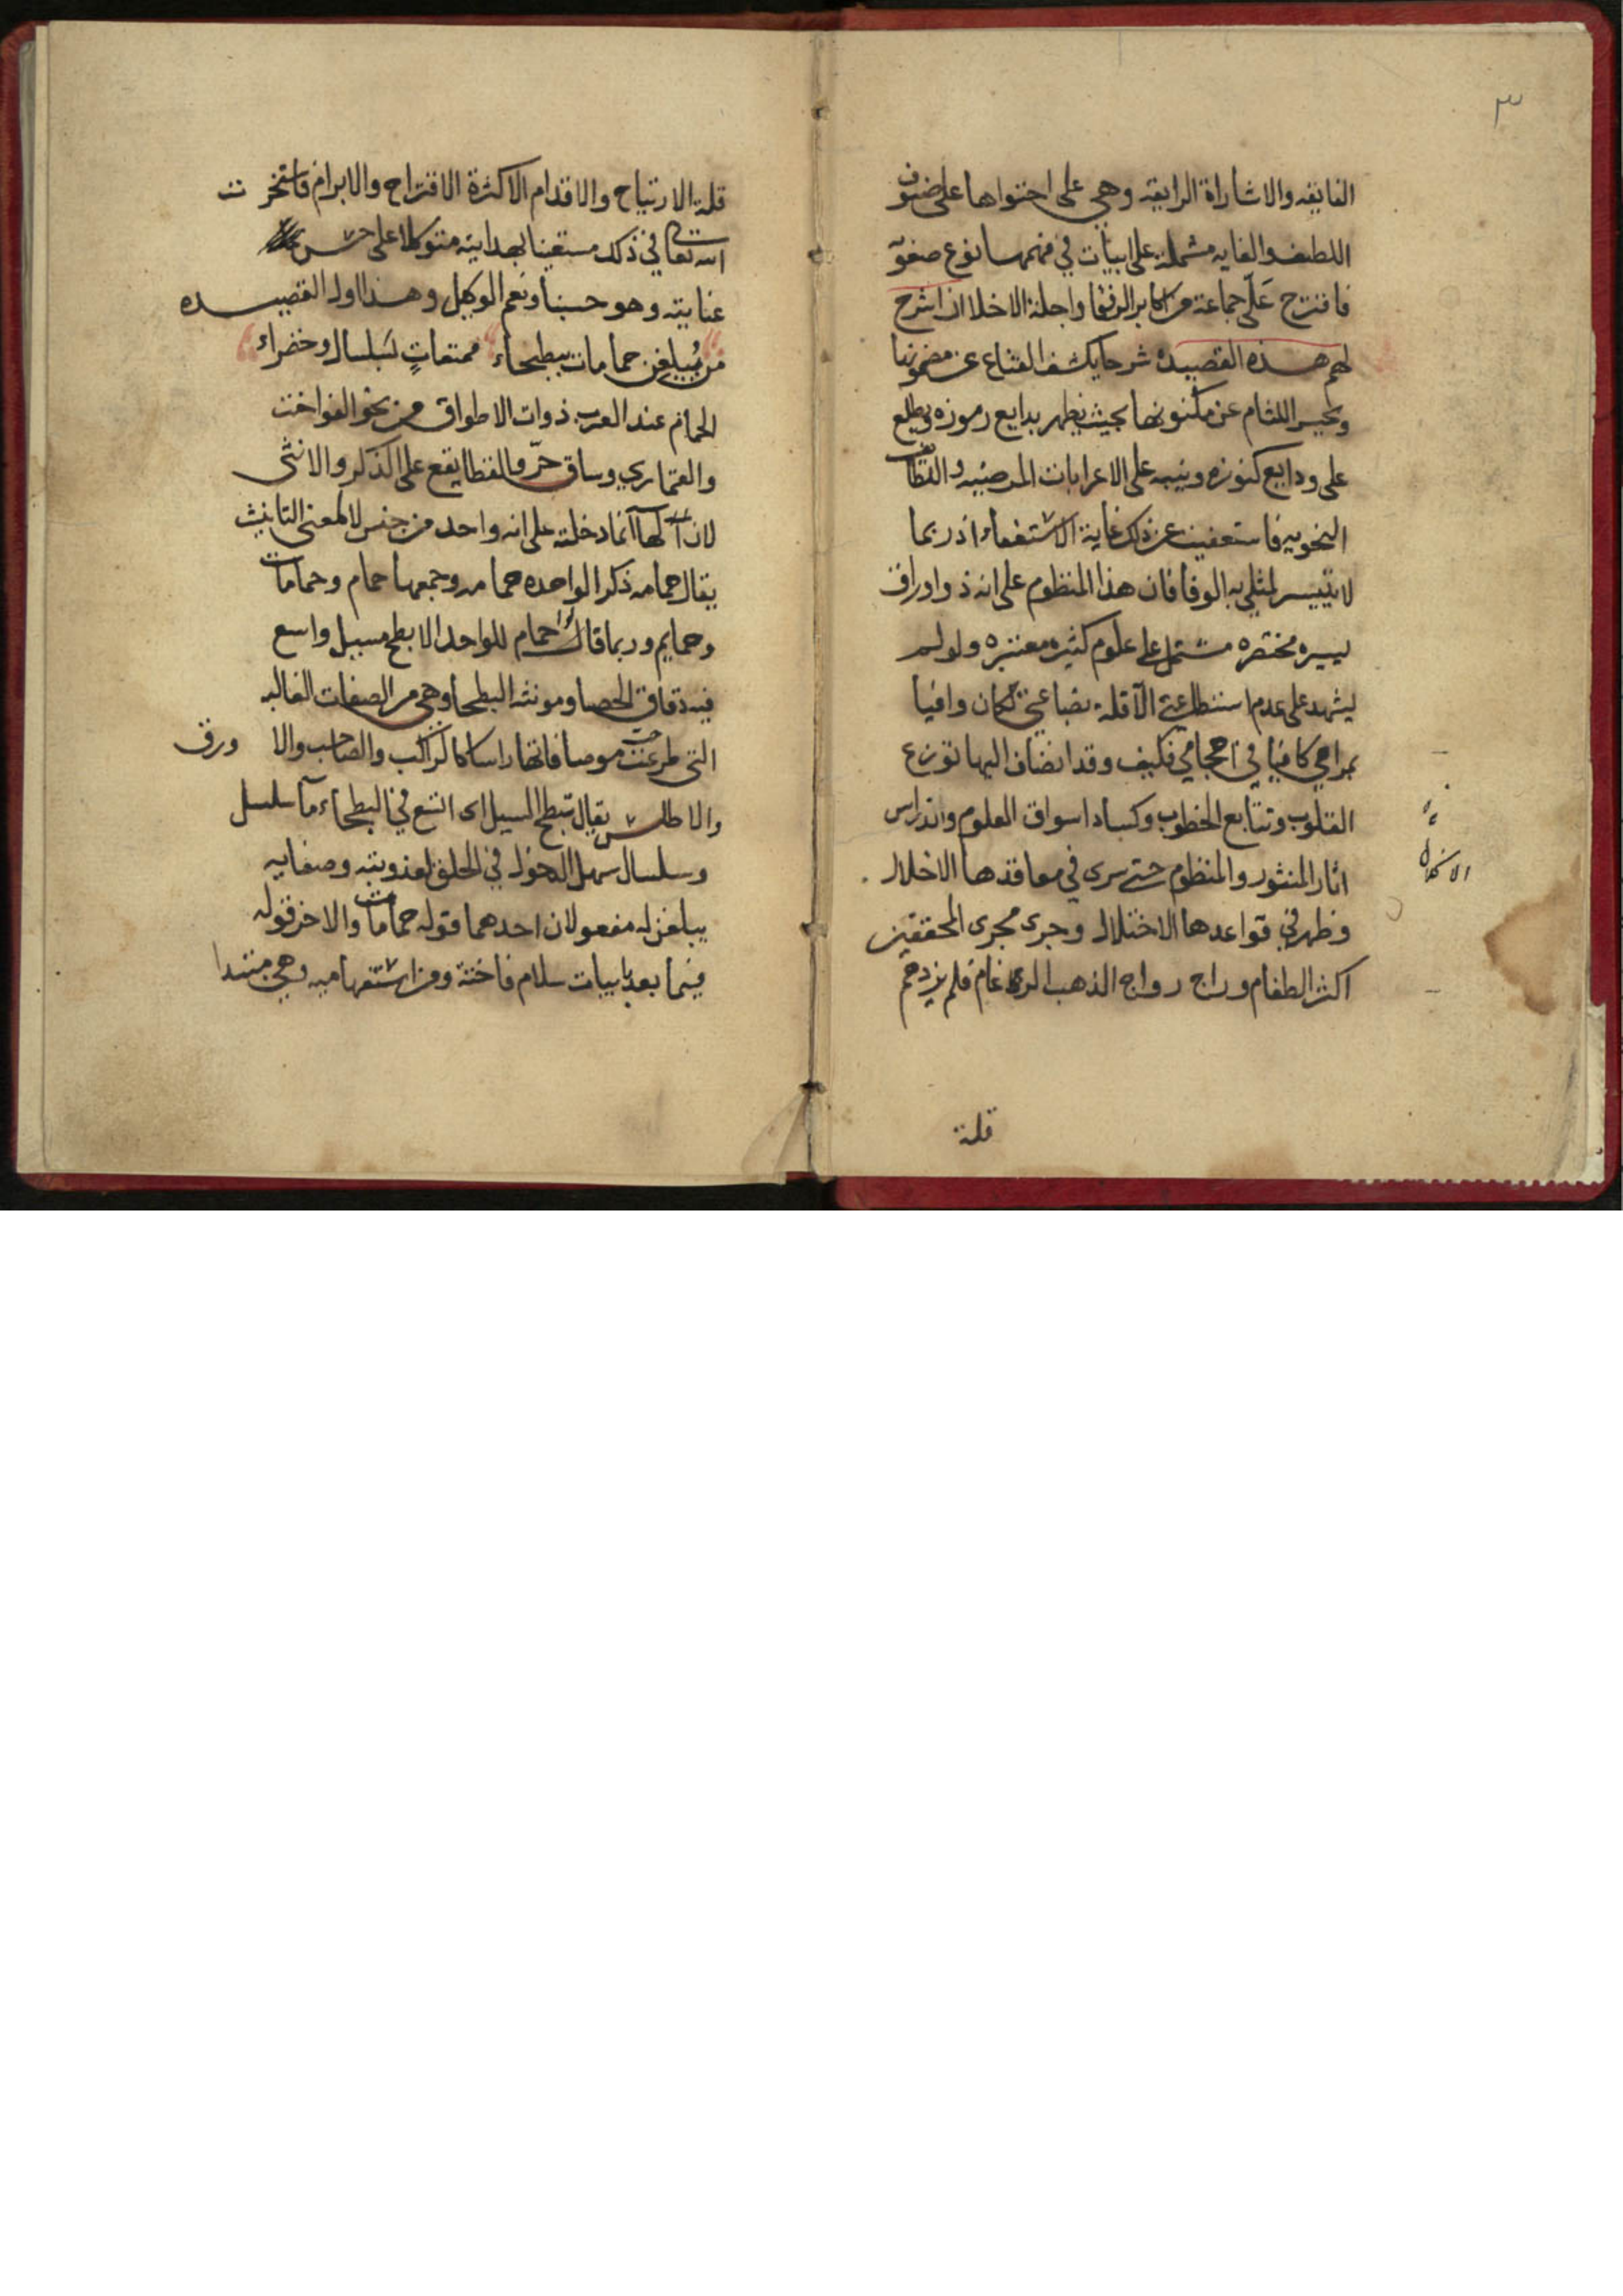 ٣
الفايقه والاشاراة الرايقه وهي على احتواها على ضنوف
اللطيف والغايه مشتملة على ابيات في فهمها نوع صعوبة
فاقترح علي جماعة من اكابر الرفقا واجلة الاخلا ان اشرح
لهم هذه القصيده شرحا يكشف القناع عن مضمونها
ويحسر اللثام عن مكنونها بحيث يظهر بدايع رموزه ويطلع
على ودايع كنوزه وينبه على الاعرابات المرضيه والنكات
النحويه فاستعفيت عن ذلك غاية الاستعفاء اذ ربما
لا يتيسر لمثلي به الوفا فان هذا المنظوم على انه ذو اوراق
يسيره مختصره مشتمل على علوم كثيره معتبره ولو لم
يشهد على عدم استطاعتي الا قلة بضاعتي لكان وافيا
بمرامي كافيا في احجامي فكيف وقد انضاف اليها توزع
القلوب وتتابع الخطوب وكساد اسواق العلوم واندراس
اثار المنثور والمنظوم حتى سرى في معاقدها الاخلال
وظهر في قواعدها الاختلال وجرى مجرى المحققين
اكثر الطغام وراج رواج الذهب الرغام فلم يزدحم
قلة
قلة الارتياح والاقدام الا كثرة الاقتراح والابرام فاستخرت
الله تعالى في ذلك مستعينا بهدايته متوكلا على حسن
عنايته وهو حسبنا ونعم الوكيل وهذا اول القصيده
من يبلغن حمامات ببطحاء ممتعات بسلسال وخضراء
الحمام عند العرب ذوات الاطواق من نحو الفواخت
والقماري وساق حر والقطا يقع على الذكر والانثى
لان الهاء انما دخلته على انه واحد من جنس لا لمعنى التانيث
يقال حمامه ذكر الواحده حمامه وجمعها حمام وحمامات
وحمايم وربما قالوا حمام للواحد الابطح مسيل واسع
فيه دقاق الحصا ومونثه البطحا وهي من الصفات الغالبه
التي طرحت موصافاتها راسا كالراكب والصاحب والاورق
والاطلس يقال تبطح السيل اى اتسع في البطحاء ما سلسل
وسلسال سهل الدخول في الحلق لعذوبته وصفايه
يبلغن له مفعولان احدهما قوله حمامات والاخر قوله
فيما بعد بابيات سلام فاختة ومن استفهاميه وهي مبتدا